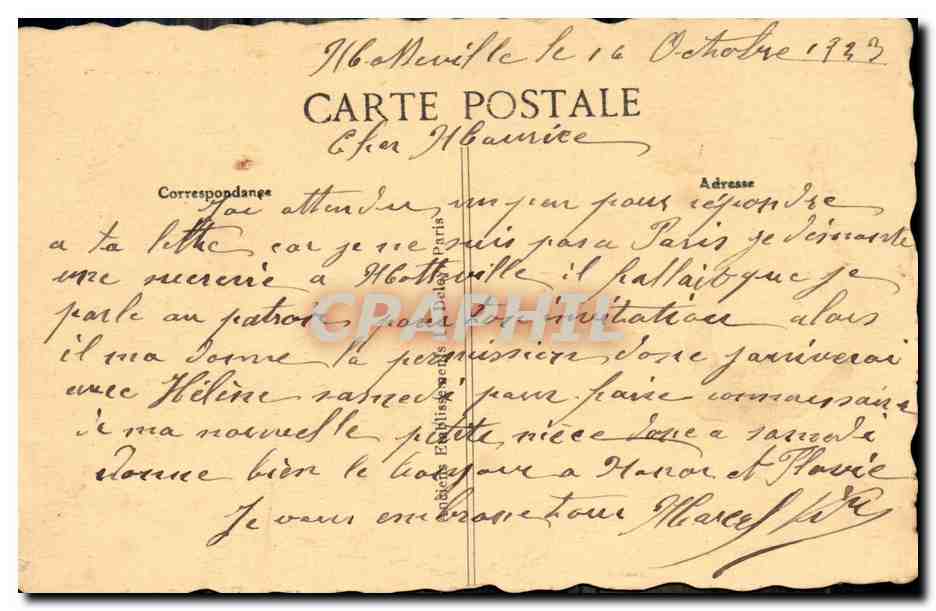 Motteville le 16 Octobre 1923
CARTE POSTALE
Cher Maurice
Correspondance
Adresse
J'ai attendu un peu pour répondre
a ta lettre car je ne suis pas a Paris je démonte
une sucrerie a Motteville il fallait que je
parle au patron pour ton invitation alors
il ma donne la permission donc j'arriverai
avec Hélène samedi pour faire connaissance
de ma nouvelle petite nièce donc a samedi
donne bien le bonjour a Honor et Flavie
Je vous embrasse tous Marcel
Anciens Etablissements Deley Paris
CPAPHIL